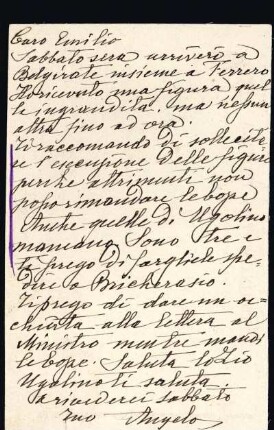 Caro Emilio
Sabbato sera arriverò a
Belgirate insieme a Ferrero
Ho ricevuto una figura quel
la ingrandita, ma nessun
altra fino ad ora.
Ti raccomando di sollecita
re l'esecuzione delle figure
perchè altrimenti non
posso rimandare le bozze
Anche quelle di Ugolino
mancano. Sono tre e
ti prego di fargliele spe-
dire a Bricherasio.
Ti prego di dare un oc-
chiata alla lettera al
Ministro mentre mandi
le bozze. Saluta lo Zio
Ugolino ti saluta.
a rivederci sabbato
Tuo Angelo